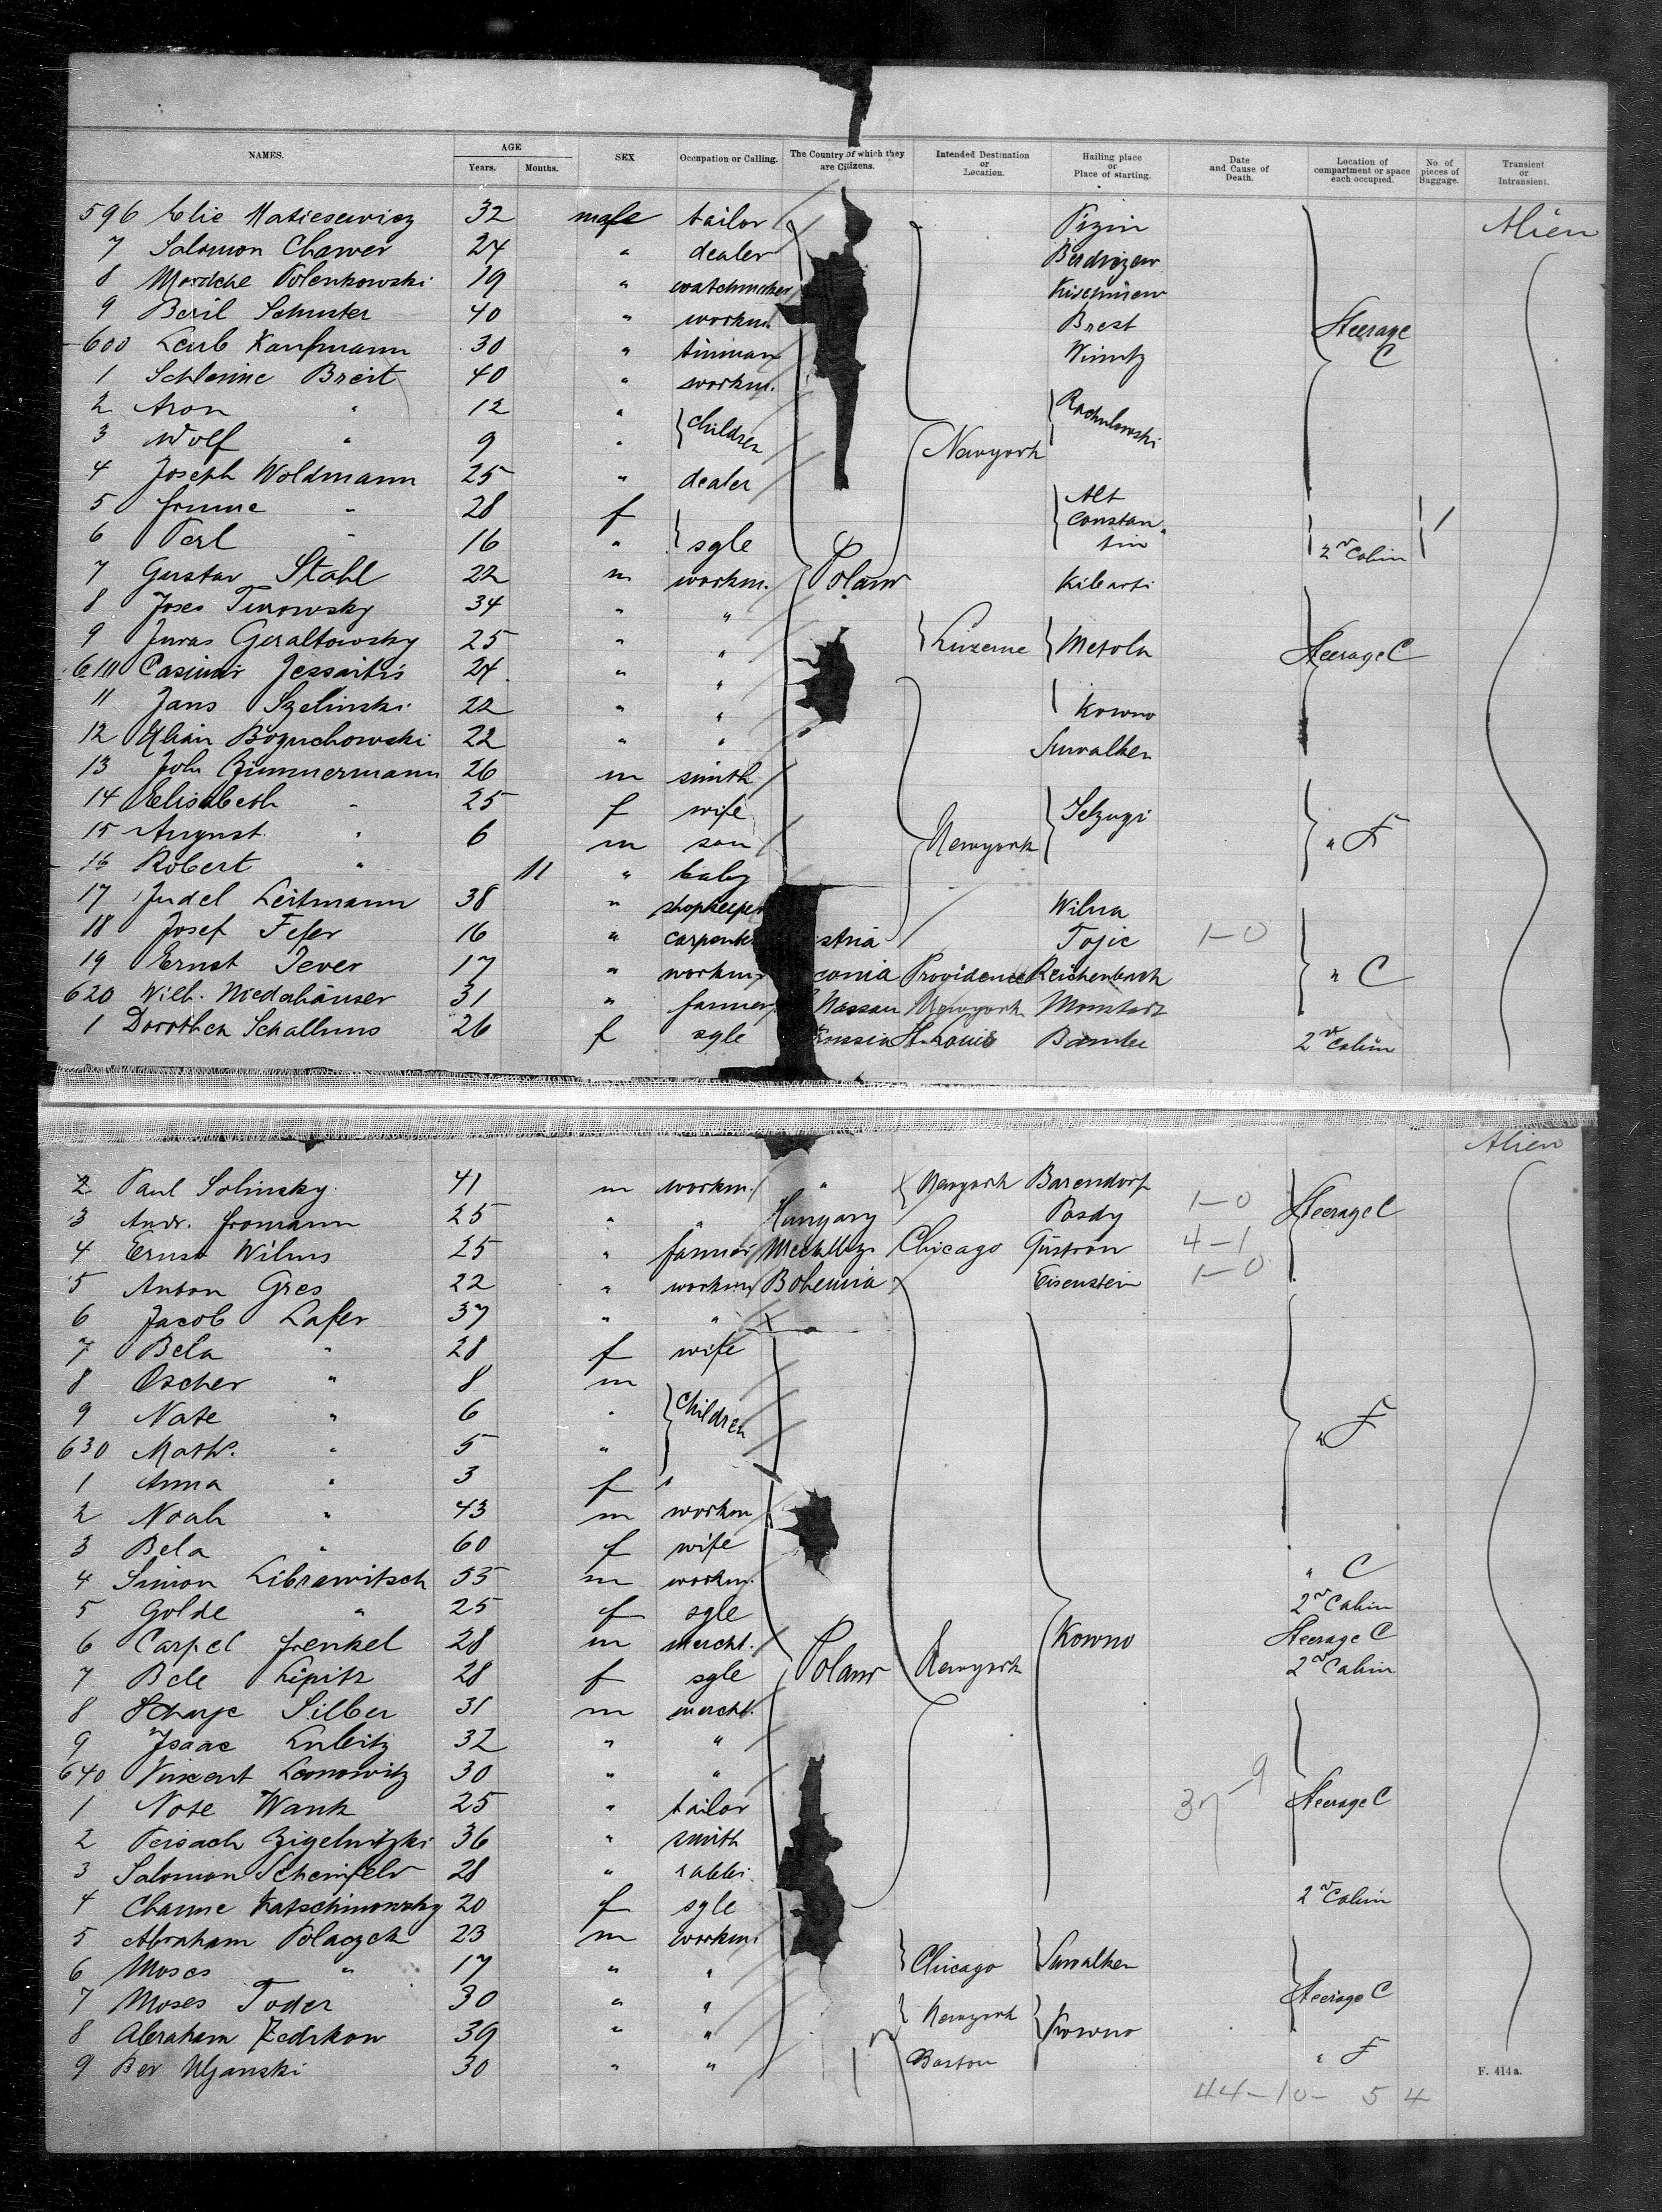 NAMES. AGE Years. Months. SEX Occupation or Calling. The Country of which they are Citizens. Intended Destination or Location. Hailing place or Place of starting. Date and Cause of Death. Location of compartment or space each occupied. No. of pieces of Baggage. Transient or Intransient.
596 Elie 32 male tailor Alien
7 Salomon Chawer 24 " dealer Berdiczew
8 Mordche Polenkowski 19 " watchmaker Kischinew
9 Beril Schuster 40 " workm. Brest Steerage
600 Leib Kaufmann 30 " tinman C
1 Breit 40 " workm.
2 Aron " 12 " children
3 Wolf " 9 " Newyork
4 Joseph Woldmann 25 " dealer
5 " 28 f Alt constan
6 Perl " 16 " sgle tin 2nd Cabin
7 Gustav Stahl 22 m workm. Poland Kibarti
8 Turowsky 34 " "
9 Juras Geraltowsky 25 " " Luzerne Steerage C
610 Casimir Jessaitis 24 " "
11 Jans Szelinski 22 " " Kowno
12 Boguchowski 22 " " Suwalken
13 Joh Zimmermann 26 m smith
14 Elisabeth " 25 f wife
15 August " 6 m son Newyork " F
16 Robert " 11 " baby
17 Judel Leitmann 38 " shopkeeper Wilna
18 Josef Fefer 16 " stria 1-0
19 Ernst Jever 17 " workm Providence Reichenbach " C
620 Wilh. Niederhäuser 31 " farmer Nassau Newyork
1 Dorothea Schallums 26 f sgle russia St. Louis 2nd Cabin
Alien
2 Paul Solinsky 41 m workm. " Newyork Barendorf
3 Andr. Fromann 25 " " Hungary Posdy 1-0 Steerage C
4 Ernst Wilms 25 " farmer Chicago Güstron 4-1
5 Anton Gres 22 " workm Bohemia Eisenstein 1-0
6 Jacob Lafer 37 " "
7 Bela " 28 f wife
8 Oscher " 8 m
9 Nate " 6 " Children
630 Maths. " 5 " " F
1 Anna " 3 f "
2 Noah " 43 m workm
3 Bela " 60 f wife
4 Simon Librawitsch 55 m workm. " C
5 Golde " 25 f sgle 2nd Cabin
6 Carpel Frenkel 28 m mercht. Kowno Steerage C
7 Bele Lipitz 28 f sgle Poland Newyork 2nd Cabin
8 Silber 31 m mercht.
9 Isaac Lubitz 32 " "
640 Vincent Leonowitz 30 " " 37-9
1 Note Wank 25 " tailor Steerage C
2 Peisach Zigelnitzki 36 " smith
3 Salomon Scheinfeld 28 " rabbi
4 Channe Katschinowsky 20 f sgle 2nd Cabin
5 Abraham Polaczek 23 m workm.
6 Moses " 17 " " Chicago Suwalken
7 Moses Toder 30 " " Newyork Steerage C
8 Abraham Zedikow 39 " " Kowno
9 Ber 30 " " Boston " F
F. 414 a.
44-10- 5 4